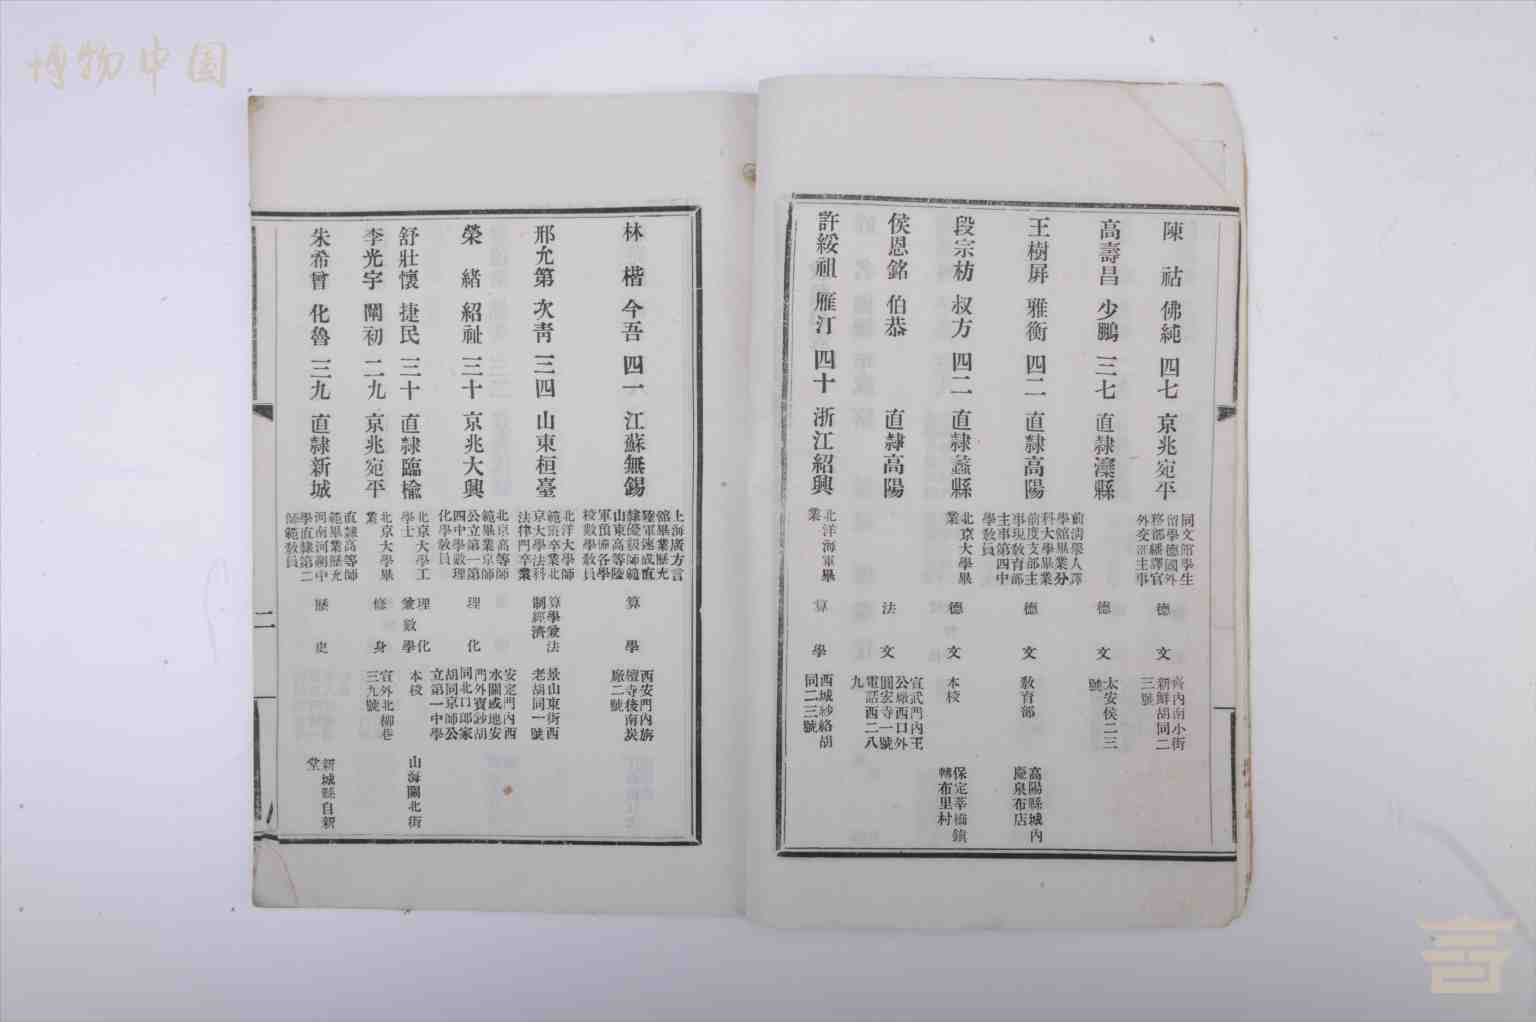 博物中国
陳祜 佛純 四七 京兆宛平 同文館學生留學德國外務部繙譯官外交部主事 德文 齊內南小街新鮮胡同二三號
高壽昌 少鵬 三七 直隸灤縣 德文 太安侯二三號
王樹屏 雅衡 四二 直隸高陽 前清學人譯學館畢業分科大學畢業前度支部主事現敎育部主事第四中學敎員 德文 敎育部 高陽縣城內慶泉布店
段宗枋 叔方 四二 直隸蠡縣 北京大學畢業 德文 本校 保定莘橋鎮轉布里村
侯恩銘 伯恭 直隸高陽 法文 宣武門內王公廠西口外圓宏寺一號電話西二八九
許綏祖 雁汀 四十 浙江紹興 北洋海軍畢業 算學 西城紗絡胡同二三號
林楷 今吾 四一 江蘇無錫 上海廣方言館畢業歷充陸軍速成直隸優級師範山東高等陸軍預備各學校數學敎員 算學 西安門內旃檀寺後南炭廠二號
邢允第 次青 三四 山東桓臺 北洋大學師範班卒業北京大學法科法律門卒業 算學兼法制經濟 景山東街西老胡同一號
榮緒 紹祉 三十 京兆大興 北京高等師範畢業京師公立第一第四中學數理化學敎員 理化 安定門內西水關或地安門外寶鈔胡同北口郎家胡同京師公立第一中學
舒壯懷 捷民 三十 直隸臨榆 北京大學工學士 理化兼數學 本校 山海關北街
李光宇 闡初 二九 京兆宛平 北京大學畢業 修身 宣外北柳巷三九號
朱希曾 化魯 三九 直隸新城 直隸高等師範畢業歷充河南河朔中學直隸第二師範敎員 歷史 新城縣自新堂
二